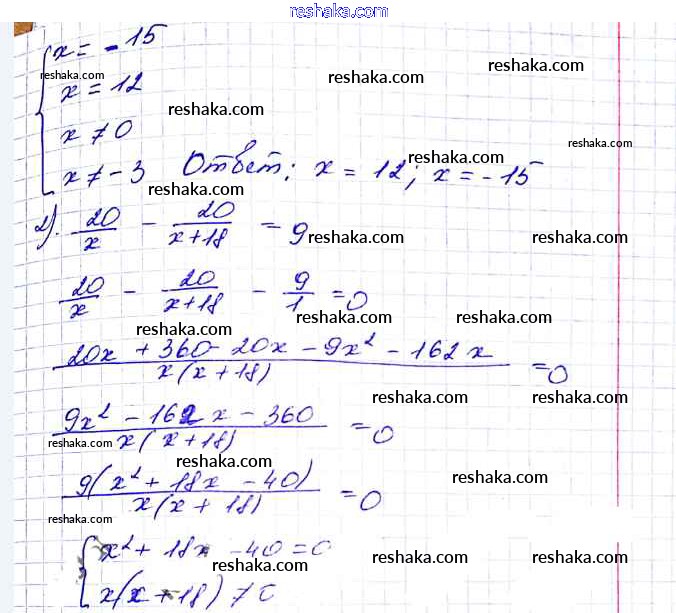 reshaka.com
x = -15
reshaka.com reshaka.com
x = 12 reshaka.com
x ≠ 0 reshaka.com
x ≠ -3 Ответ: x = 12; x = -15
reshaka.com reshaka.com reshaka.com
2). 20/x - 20/(x+18) = 9
reshaka.com reshaka.com
20/x - 20/(x+18) - 9/1 = 0
reshaka.com reshaka.com reshaka.com
(20x + 360 - 20x - 9x² - 162x)/(x(x+18)) = 0
reshaka.com reshaka.com
(9x² - 162x - 360)/(x(x+18)) = 0
reshaka.com reshaka.com reshaka.com
9(x² + 18x - 40)/(x(x+18)) = 0
reshaka.com reshaka.com
x² + 18x - 40 = 0
reshaka.com reshaka.com reshaka.com
x(x+18) ≠ 0